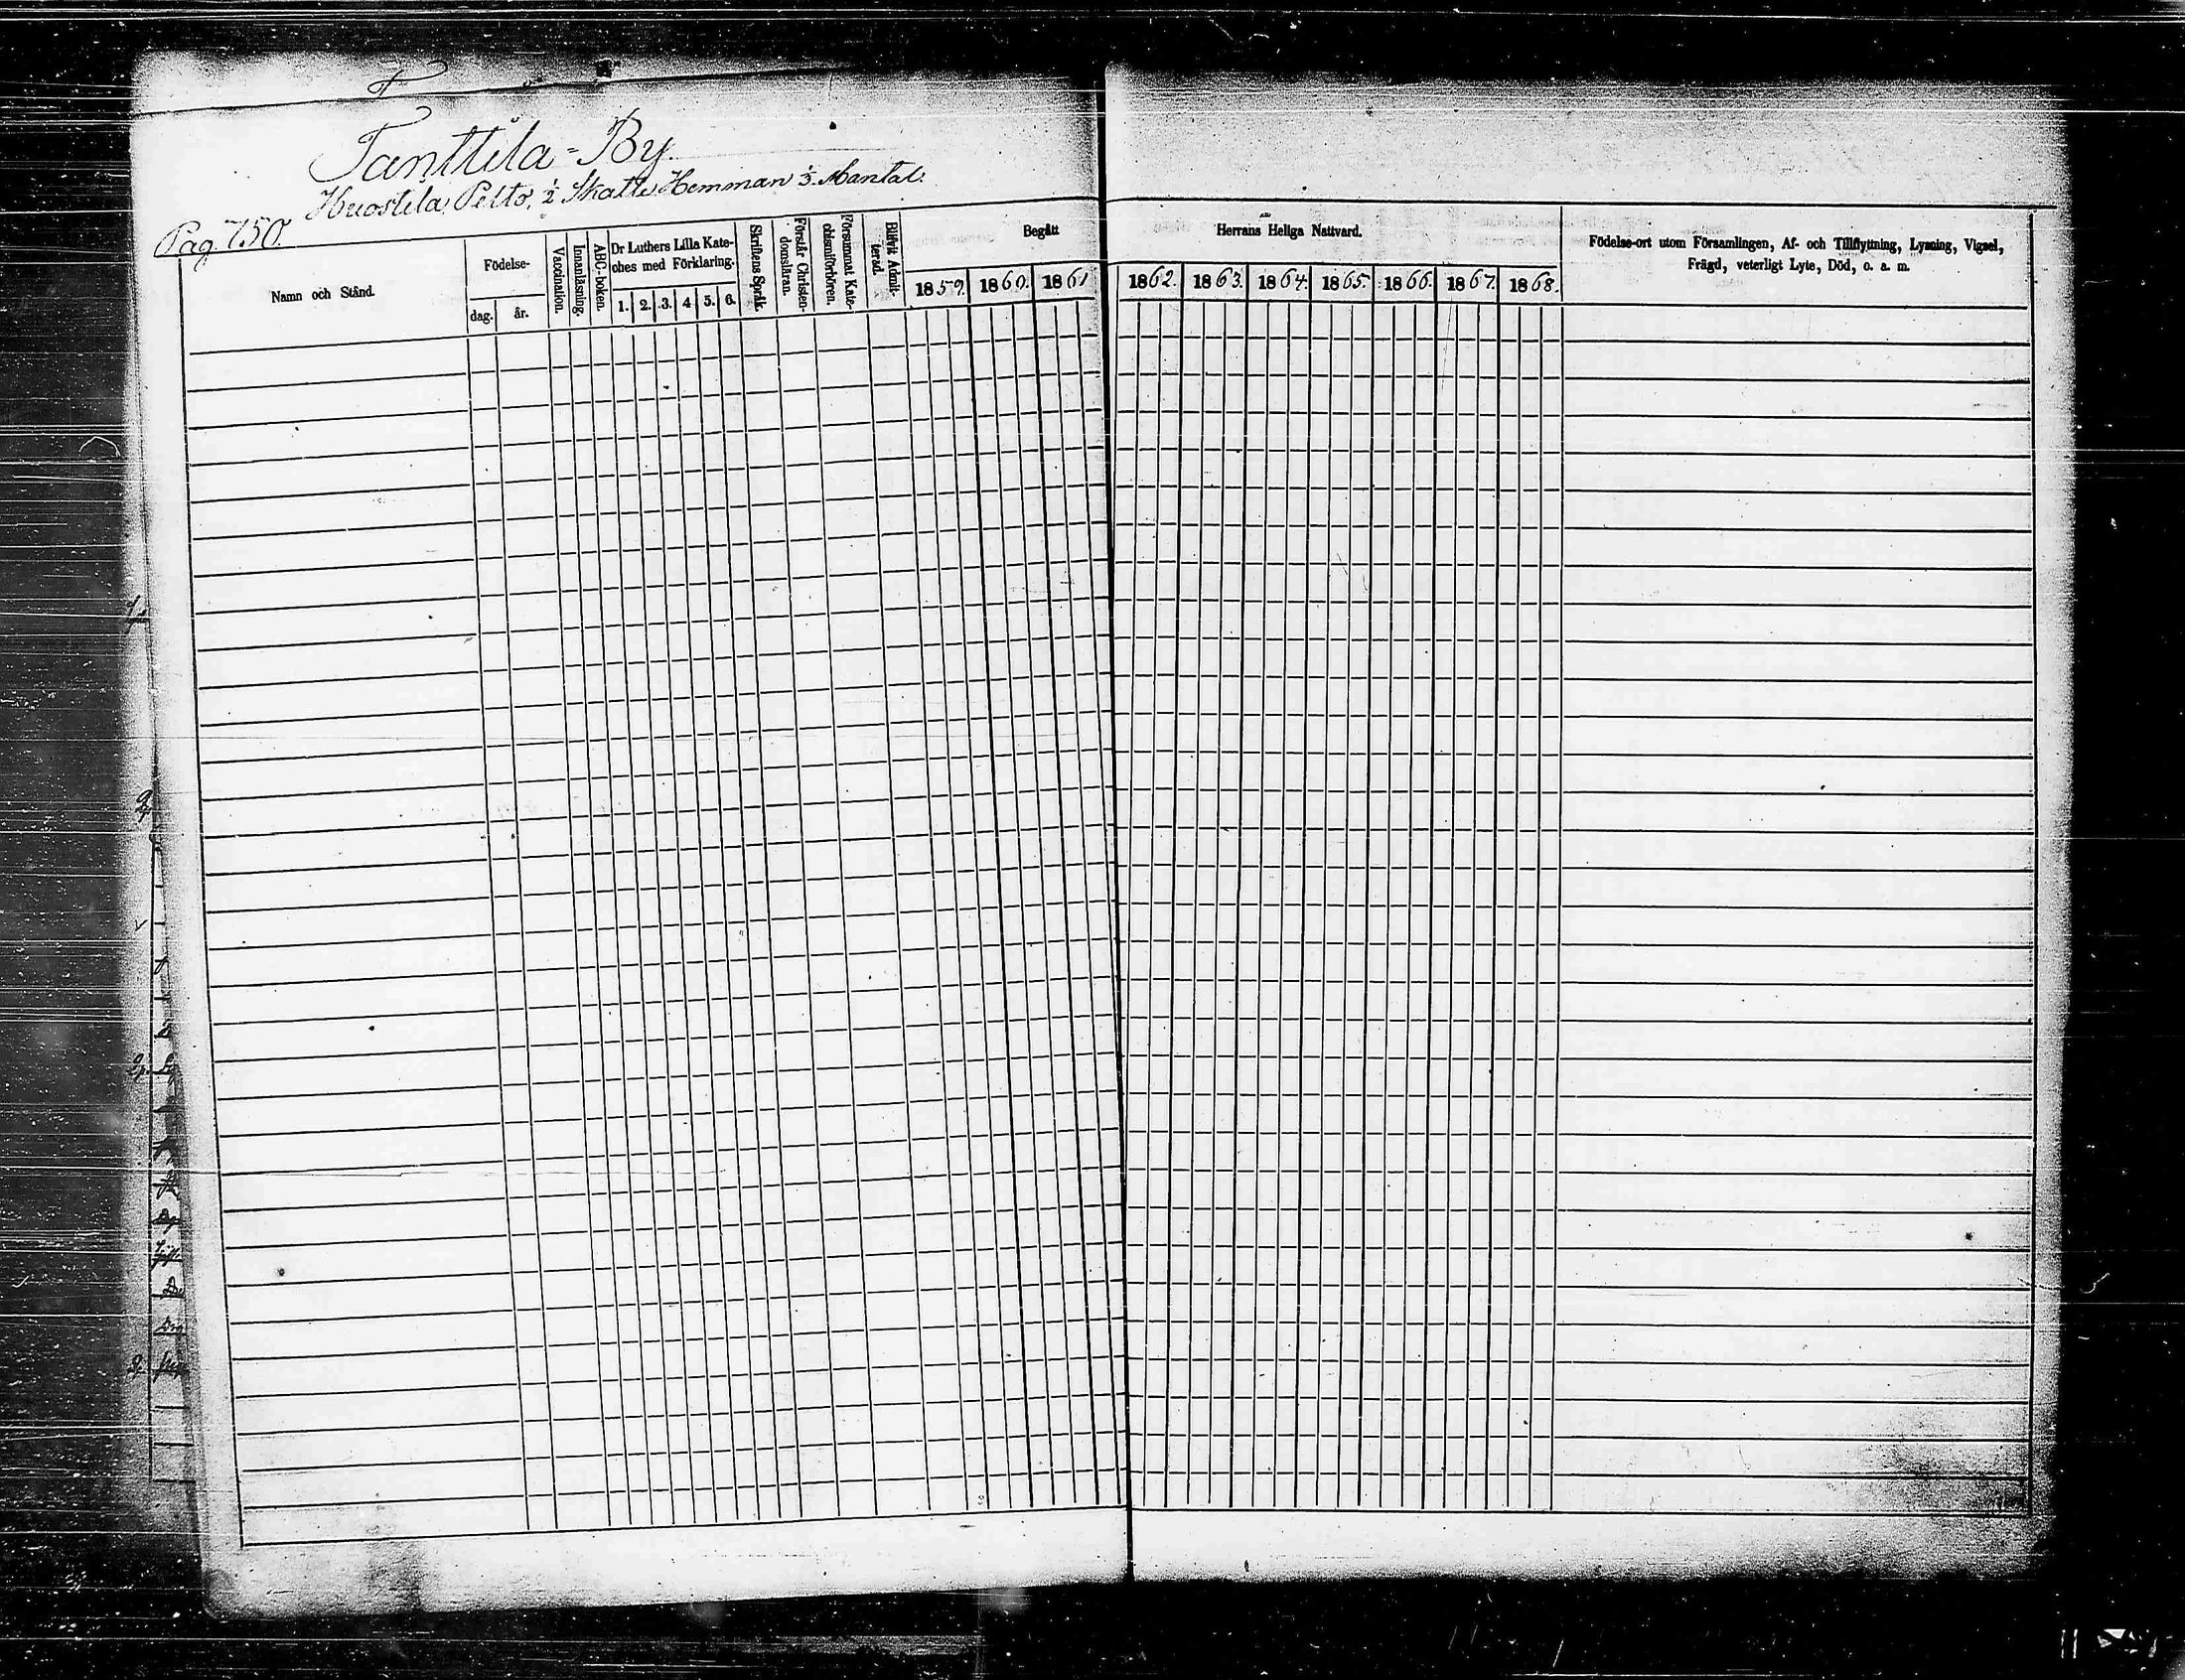 Tanttila-By.
Huostila, Pelto, ½ Skatte Hemman ⅓ Mantal.
Pag. 750.
Namn och Stånd.
Födelse-
dag.
år.
Vaccination.
Innanläsning.
ABC-boken.
Dr Luthers Lilla Kate-
ches med Förklaring.
1. 2. 3. 4 5. 6.
Skriftens Språk.
Förstår Christen-
domsläran.
Försummat Kate-
chismiförhören.
Blifvit Admit-
terad.
Begått
1859. 1860. 1861
Herrans Heliga Nattvard.
1862. 1863. 1864. 1865. 1866. 1867. 1868.
Födelse-ort utom Församlingen, Af- och Tillflyttning, Lysning, Vigsel,
Frägd, veterligt Lyte, Död, o. a. m.